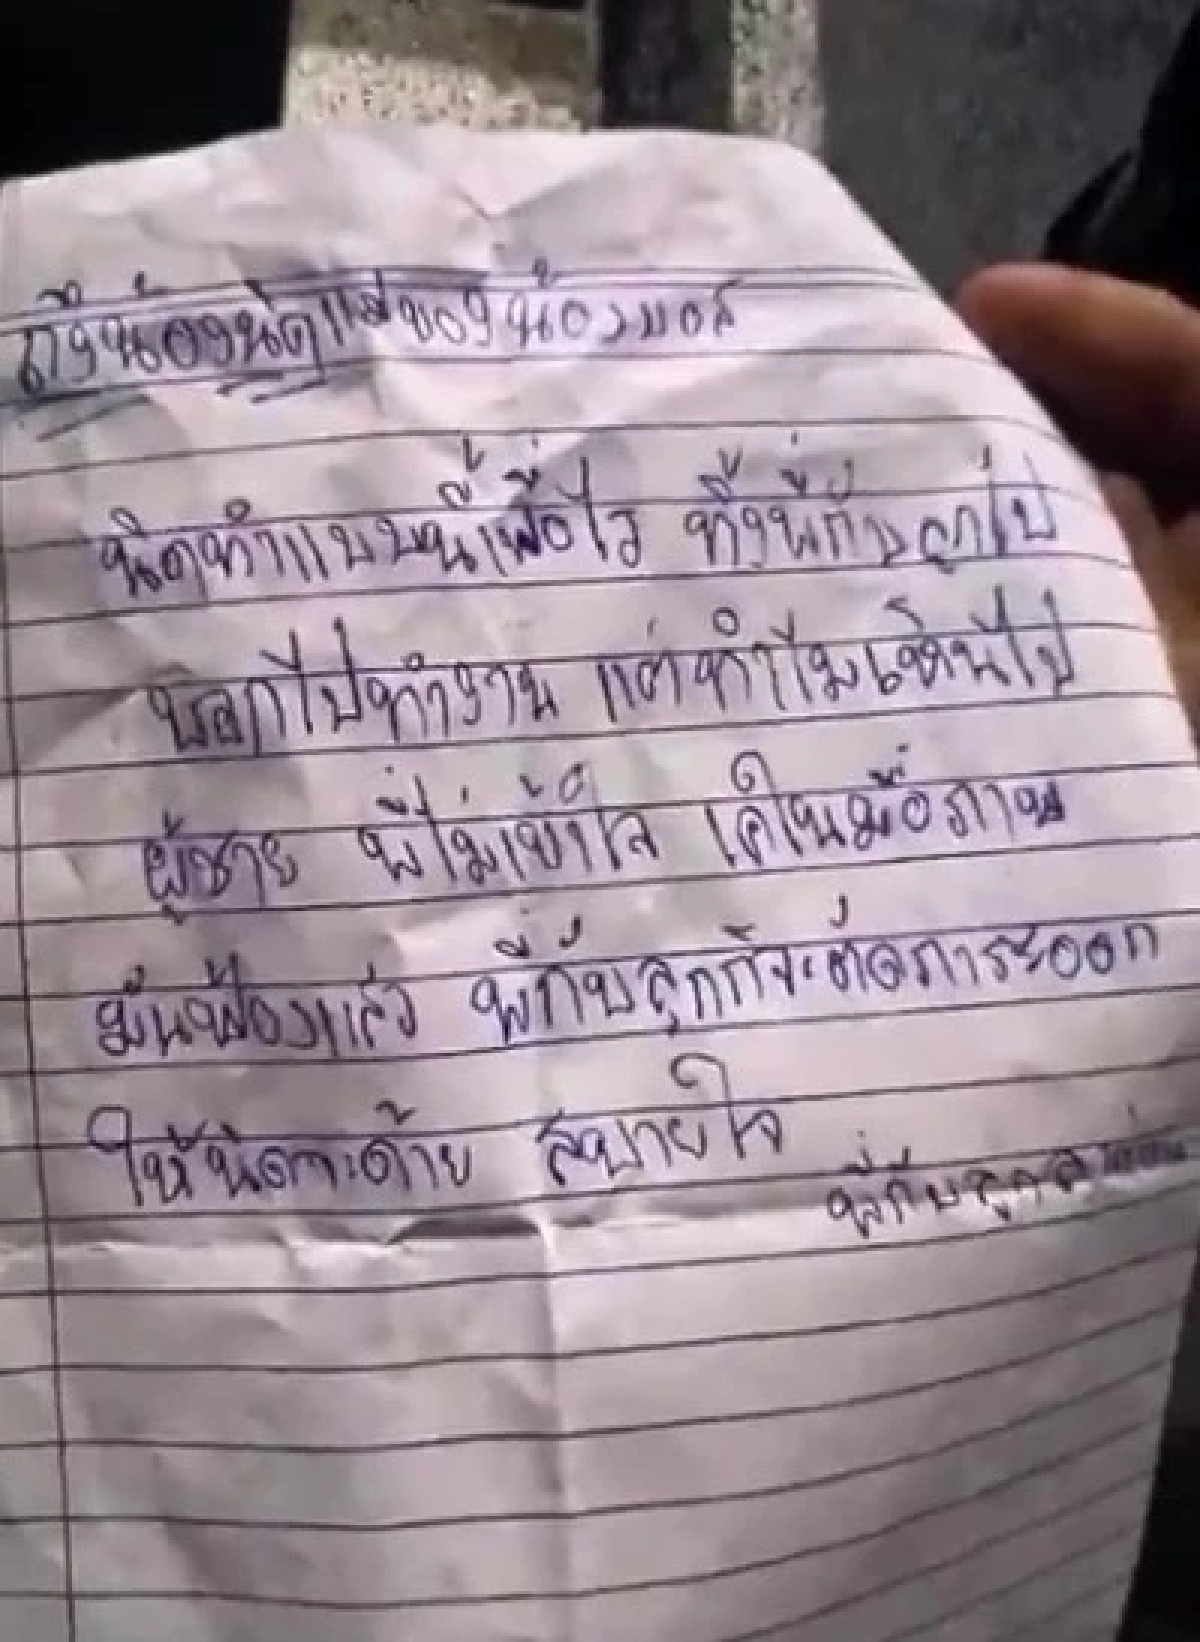 ถึงน้องนิดแม่ของน้องมอส
นิดทำแบบนี้เพื่อไร ทิ้งพี่กับลูกไป
บอกไปทำงาน แต่ทำไมเห็นไป
ผู้ชาย พี่ไม่เข้าใจ เคในมือภาพ
มันฟ้องแล้ว พี่กับลูกก็จะตัดภาระออก
ให้นิดจะด้าย สบายใจ
พี่กับลูก